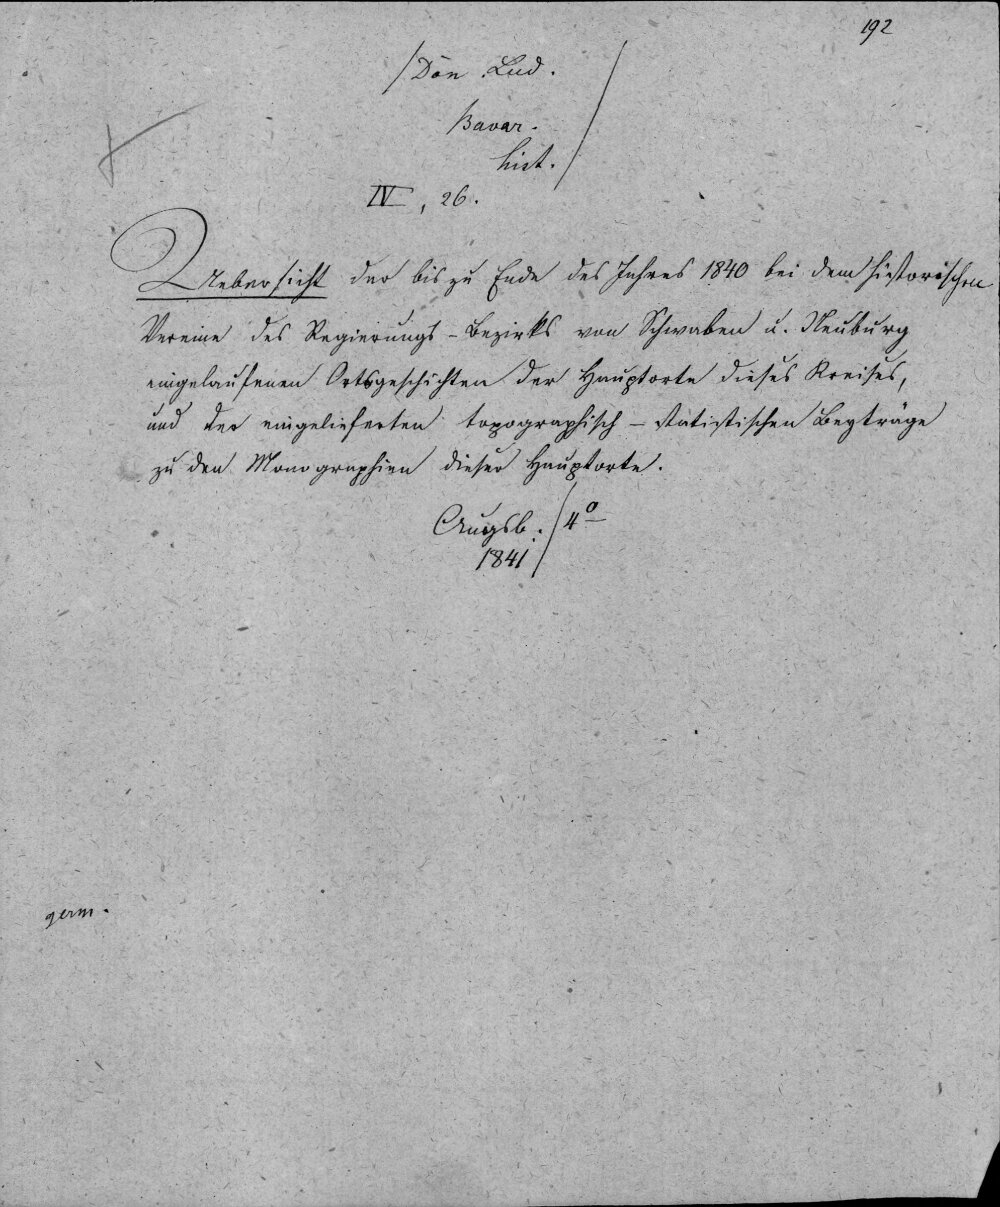 192
Don. Lud.
Bavar.
hist.
IV, 26.
Uebersicht der bis zu Ende des Jahres 1840 bei dem historischen
Vereine des Regierungs-Bezirks von Schwaben u. Neuburg
eingelaufenen Ortsgeschichten der Hauptorte dieses Kreises,
und der eingelieferten topographisch-statistischen Beyträge
zu den Monographien dieser Hauptorte.
Augsb. / 4°
1841
germ.